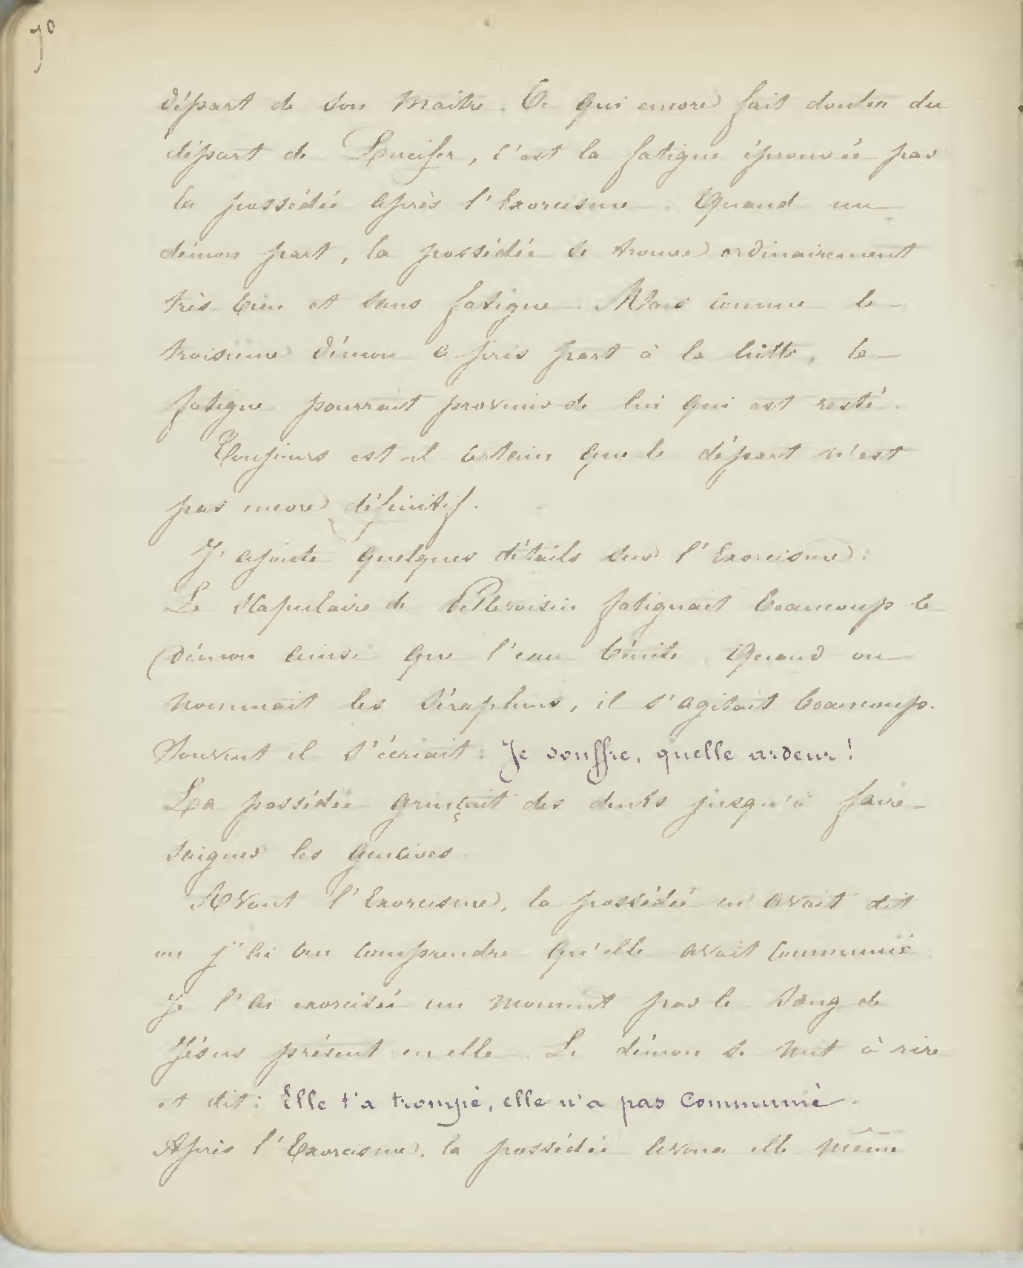 70
départ de son Maître. Ce qui encore fait douter du
départ de Lucifer, c'est la fatigue éprouvée par
la possédée après l'Exorcisme. Quand un
démon part, la possédée se trouve ordinairement
très bien et sans fatigue. Mais comme le
troisième démon a pris part à la lutte, la
fatigue pourrait provenir de lui qui est resté.
Toujours est-il certain que le départ n'est
pas encore définitif.
J'ajoute quelques détails sur l'Exorcisme:
Le Scapulaire de Pellevoisin fatiguait beaucoup le
démon ainsi que l'eau bénite. Quand on
nommait les Séraphins, il s'agitait beaucoup.
Souvent il s'écriait: Je souffre, quelle ardeur!
La possédée grinçait des dents jusqu'à faire
saigner les gencives.
Avant l'Exorcisme, la possédée m'avait dit
ou j'ai cru comprendre qu'elle avait communié.
Je l'ai exorcisée un moment par le Sang de
Jésus présent en elle. Le démon se mit à rire
et dit: Elle t'a trompé, elle n'a pas Communié.
Après l'Exorcisme, la possédée avoua elle même